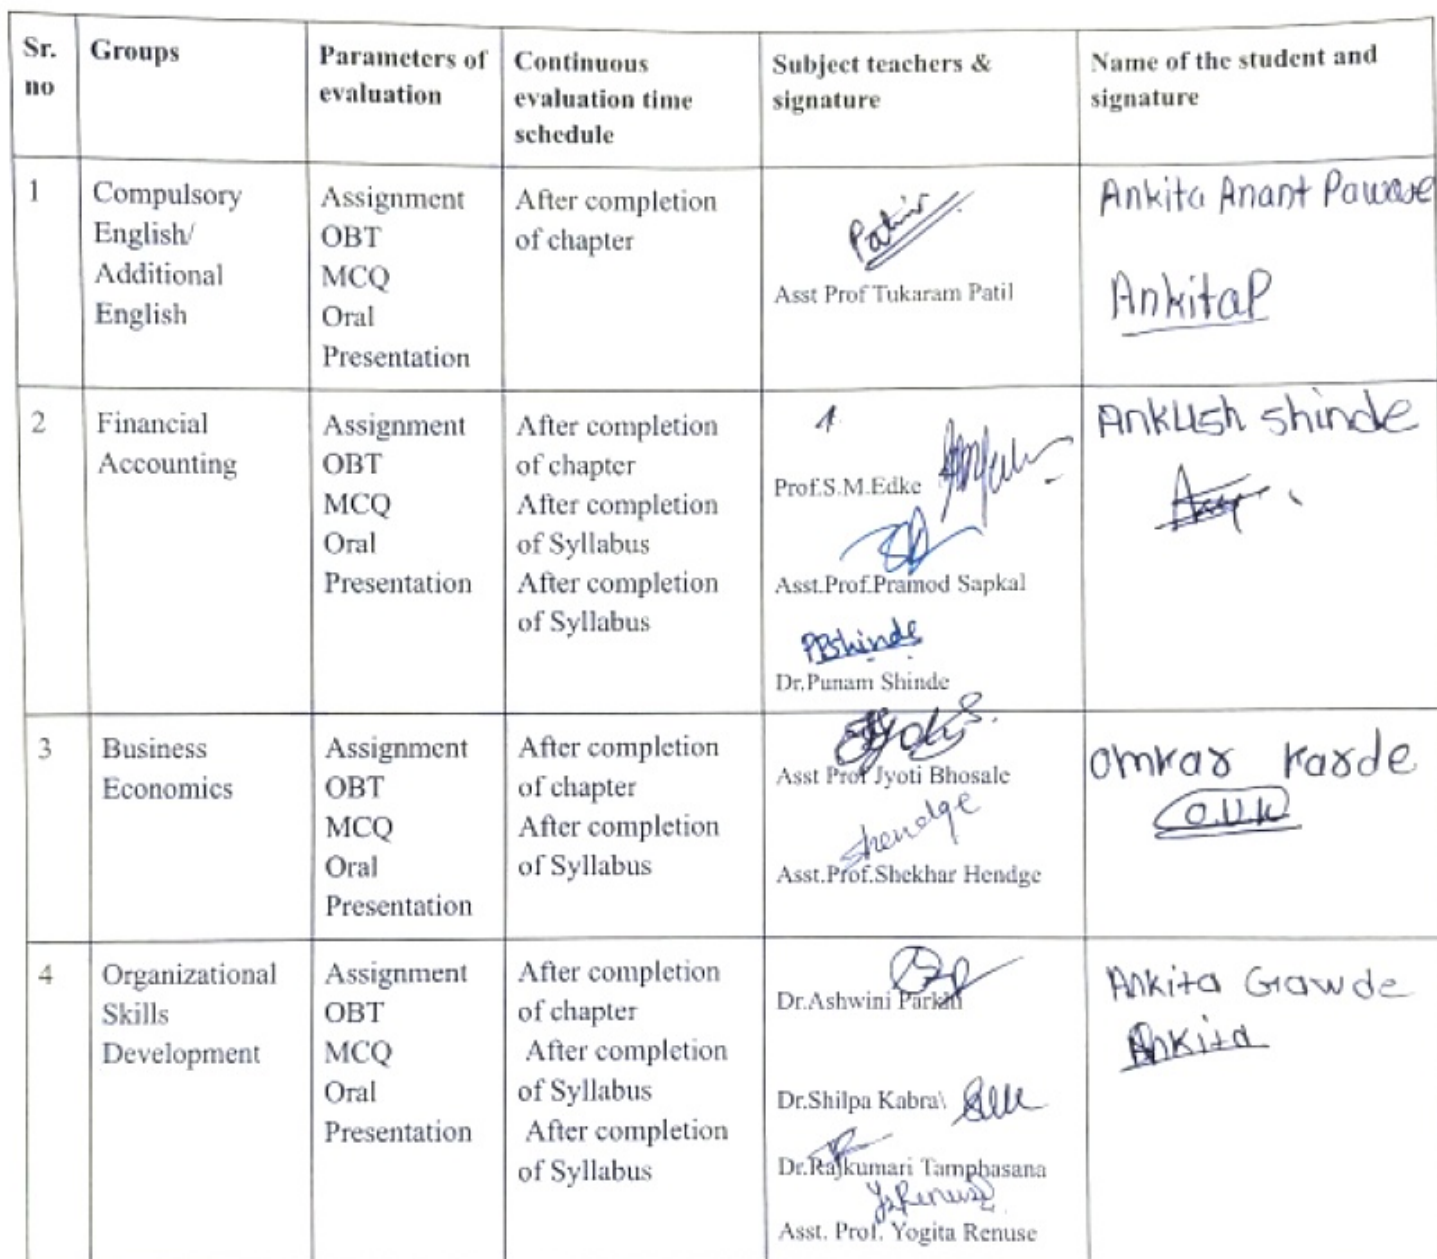 Sr. no
Groups
Parameters of evaluation
Continuous evaluation time schedule
Subject teachers & signature
Name of the student and signature
1
Compulsory
English/
Additional
English
Assignment
OBT
MCQ
Oral
Presentation
After completion
of chapter
Asst Prof Tukaram Patil
Ankita Anant Pawase
AnkitaP
2
Financial
Accounting
Assignment
OBT
MCQ
Oral
Presentation
After completion
of chapter
After completion
of Syllabus
After completion
of Syllabus
Prof.S.M.Edke
Asst.Prof.Pramod Sapkal
PBShinde
Dr.Punam Shinde
Ankush shinde
3
Business
Economics
Assignment
OBT
MCQ
Oral
Presentation
After completion
of chapter
After completion
of Syllabus
Asst Prof Jyoti Bhosale
Shendge
Asst.Prof.Shekhar Hendge
Omkar Karde
O.U.K
4
Organizational
Skills
Development
Assignment
OBT
MCQ
Oral
Presentation
After completion
of chapter
After completion
of Syllabus
After completion
of Syllabus
Dr.Ashwini Parkhi
Dr.Shilpa Kabra\
Dr.Rajkumari Tamphasana
YsRenuse
Asst. Prof. Yogita Renuse
Ankita Gawde
Ankita